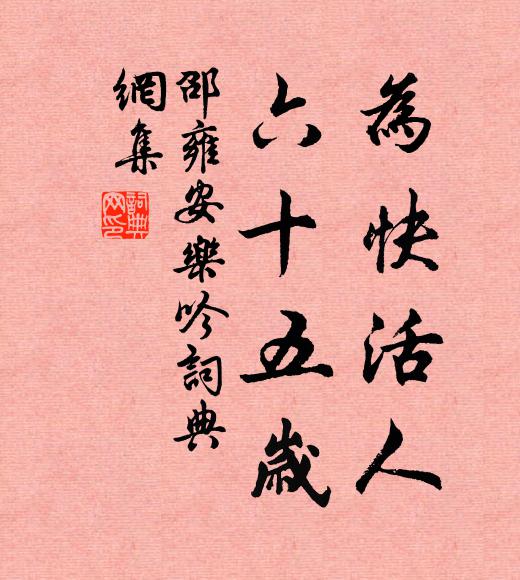 為快活人
六十五歲
邵雍安樂吟詞典
網集
詞典
网印